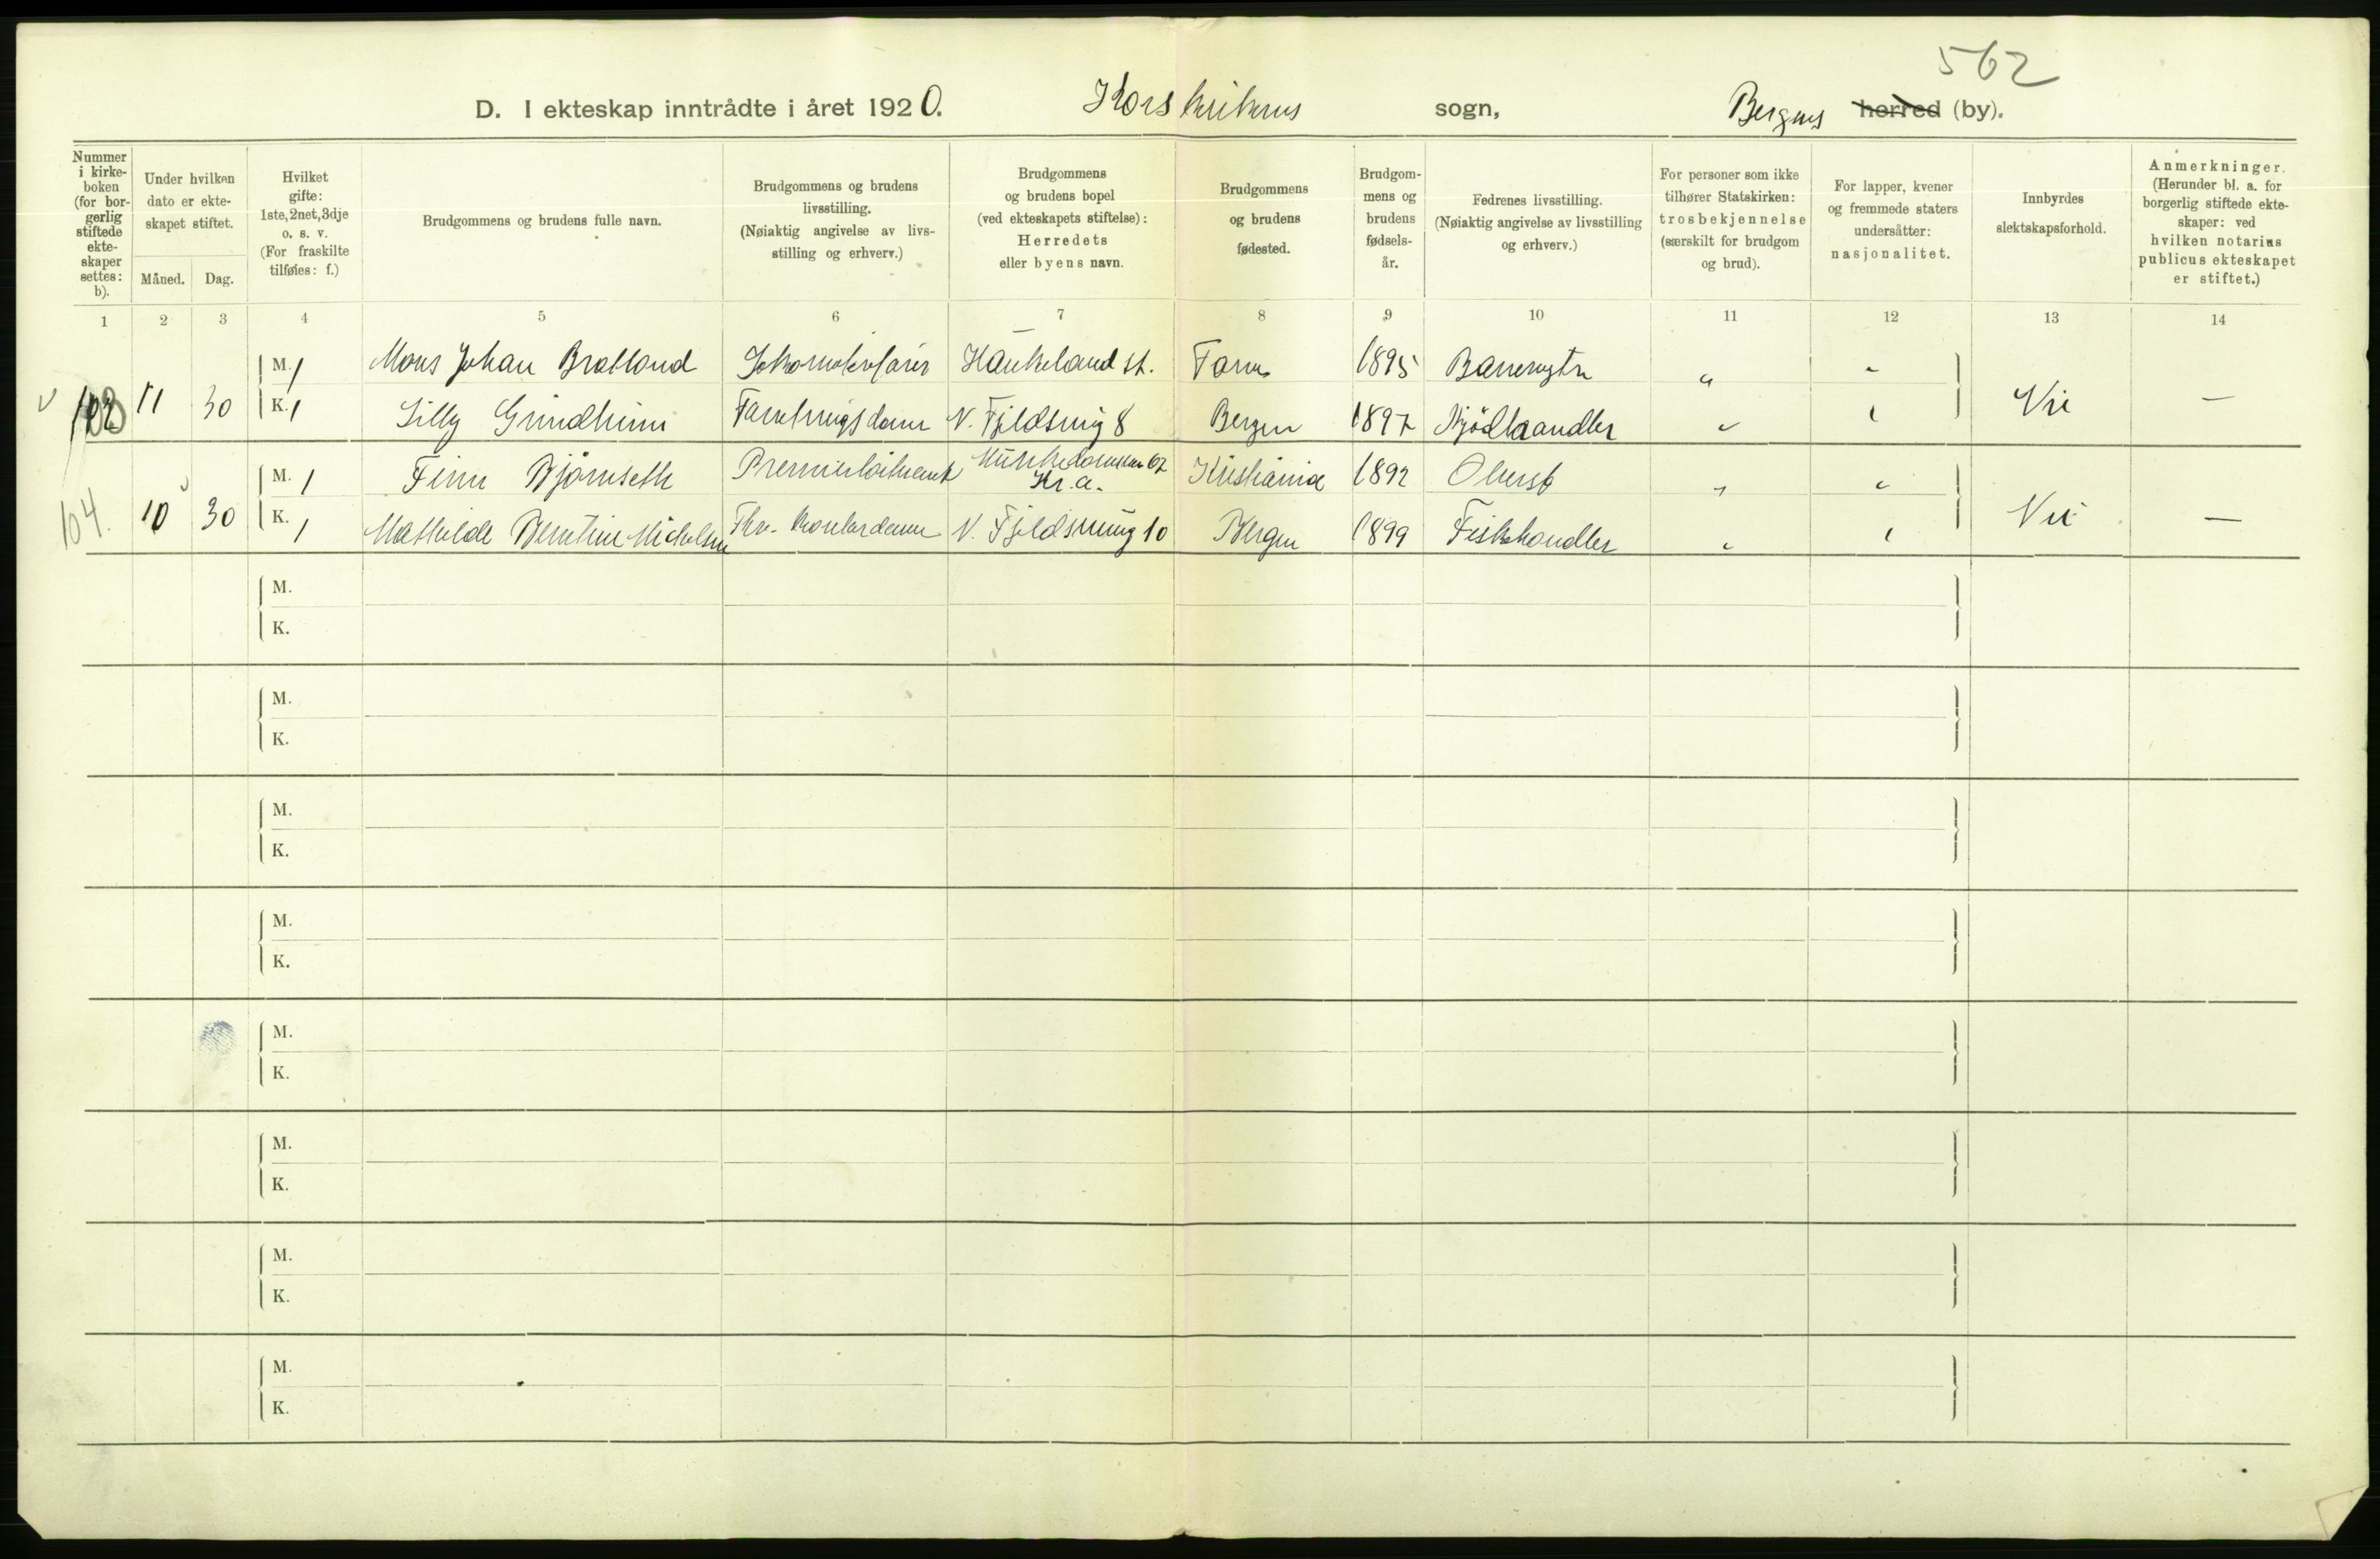 562
D. I ekteskap inntrådte i året 1920. Korskirkens sogn, Bergens herred (by).
Nummer i kirke-boken (for bor-gerlig stiftede ekte-skaper settes: b).
Under hvilken dato er ekte-skapet stiftet.
Måned. Dag.
Hvilket gifte: 1ste, 2net, 3dje o. s. v. (For fraskilte tilføies: f.)
Brudgommens og brudens fulle navn.
Brudgommens og brudens livsstilling. (Nøiaktig angivelse av livs-stilling og erhverv.)
Brudgommens og brudens bopel (ved ekteskapets stiftelse): Herredets eller byens navn.
Brudgommens og brudens fødested.
Brudgom-mens og brudens fødsels-år.
Fedrenes livsstilling. (Nøiaktig angivelse av livsstilling og erhverv.)
For personer som ikke tilhører Statskirken: trosbekjennelse (særskilt for brudgom og brud).
For lapper, kvener og fremmede staters undersåtter: nasjonalitet.
Innbyrdes slektskapsforhold.
Anmerkninger. (Herunder bl. a. for borgerlig stiftede ekte-skaper: ved hvilken notarius publicus ekteskapet er stiftet.)
1 2 3 4 5 6 7 8 9 10 11 12 13 14
M. 1 Mons Johan Bratland Haukeland st. 1895 " "
103 11 30 K. 1 Lilly Grindheim Forretningsdame N. Fjeldsmug 8 Bergen 1897 Kjødhandler " " Nei —
M. 1 Finn Bjørnseth Premierløitnant Munkedamsvn 62 Kr.a. Kristiania 1892 Oberst " "
104. 10 30 K. 1 Mathilde Berntine Michelsen Fhv. Kontordame N. Fjeldsmug 10 Bergen 1899 Fiskehandler " " Nei —
M.
K.
M.
K.
M.
K.
M.
K.
M.
K.
M.
K.
M.
K.
M.
K.